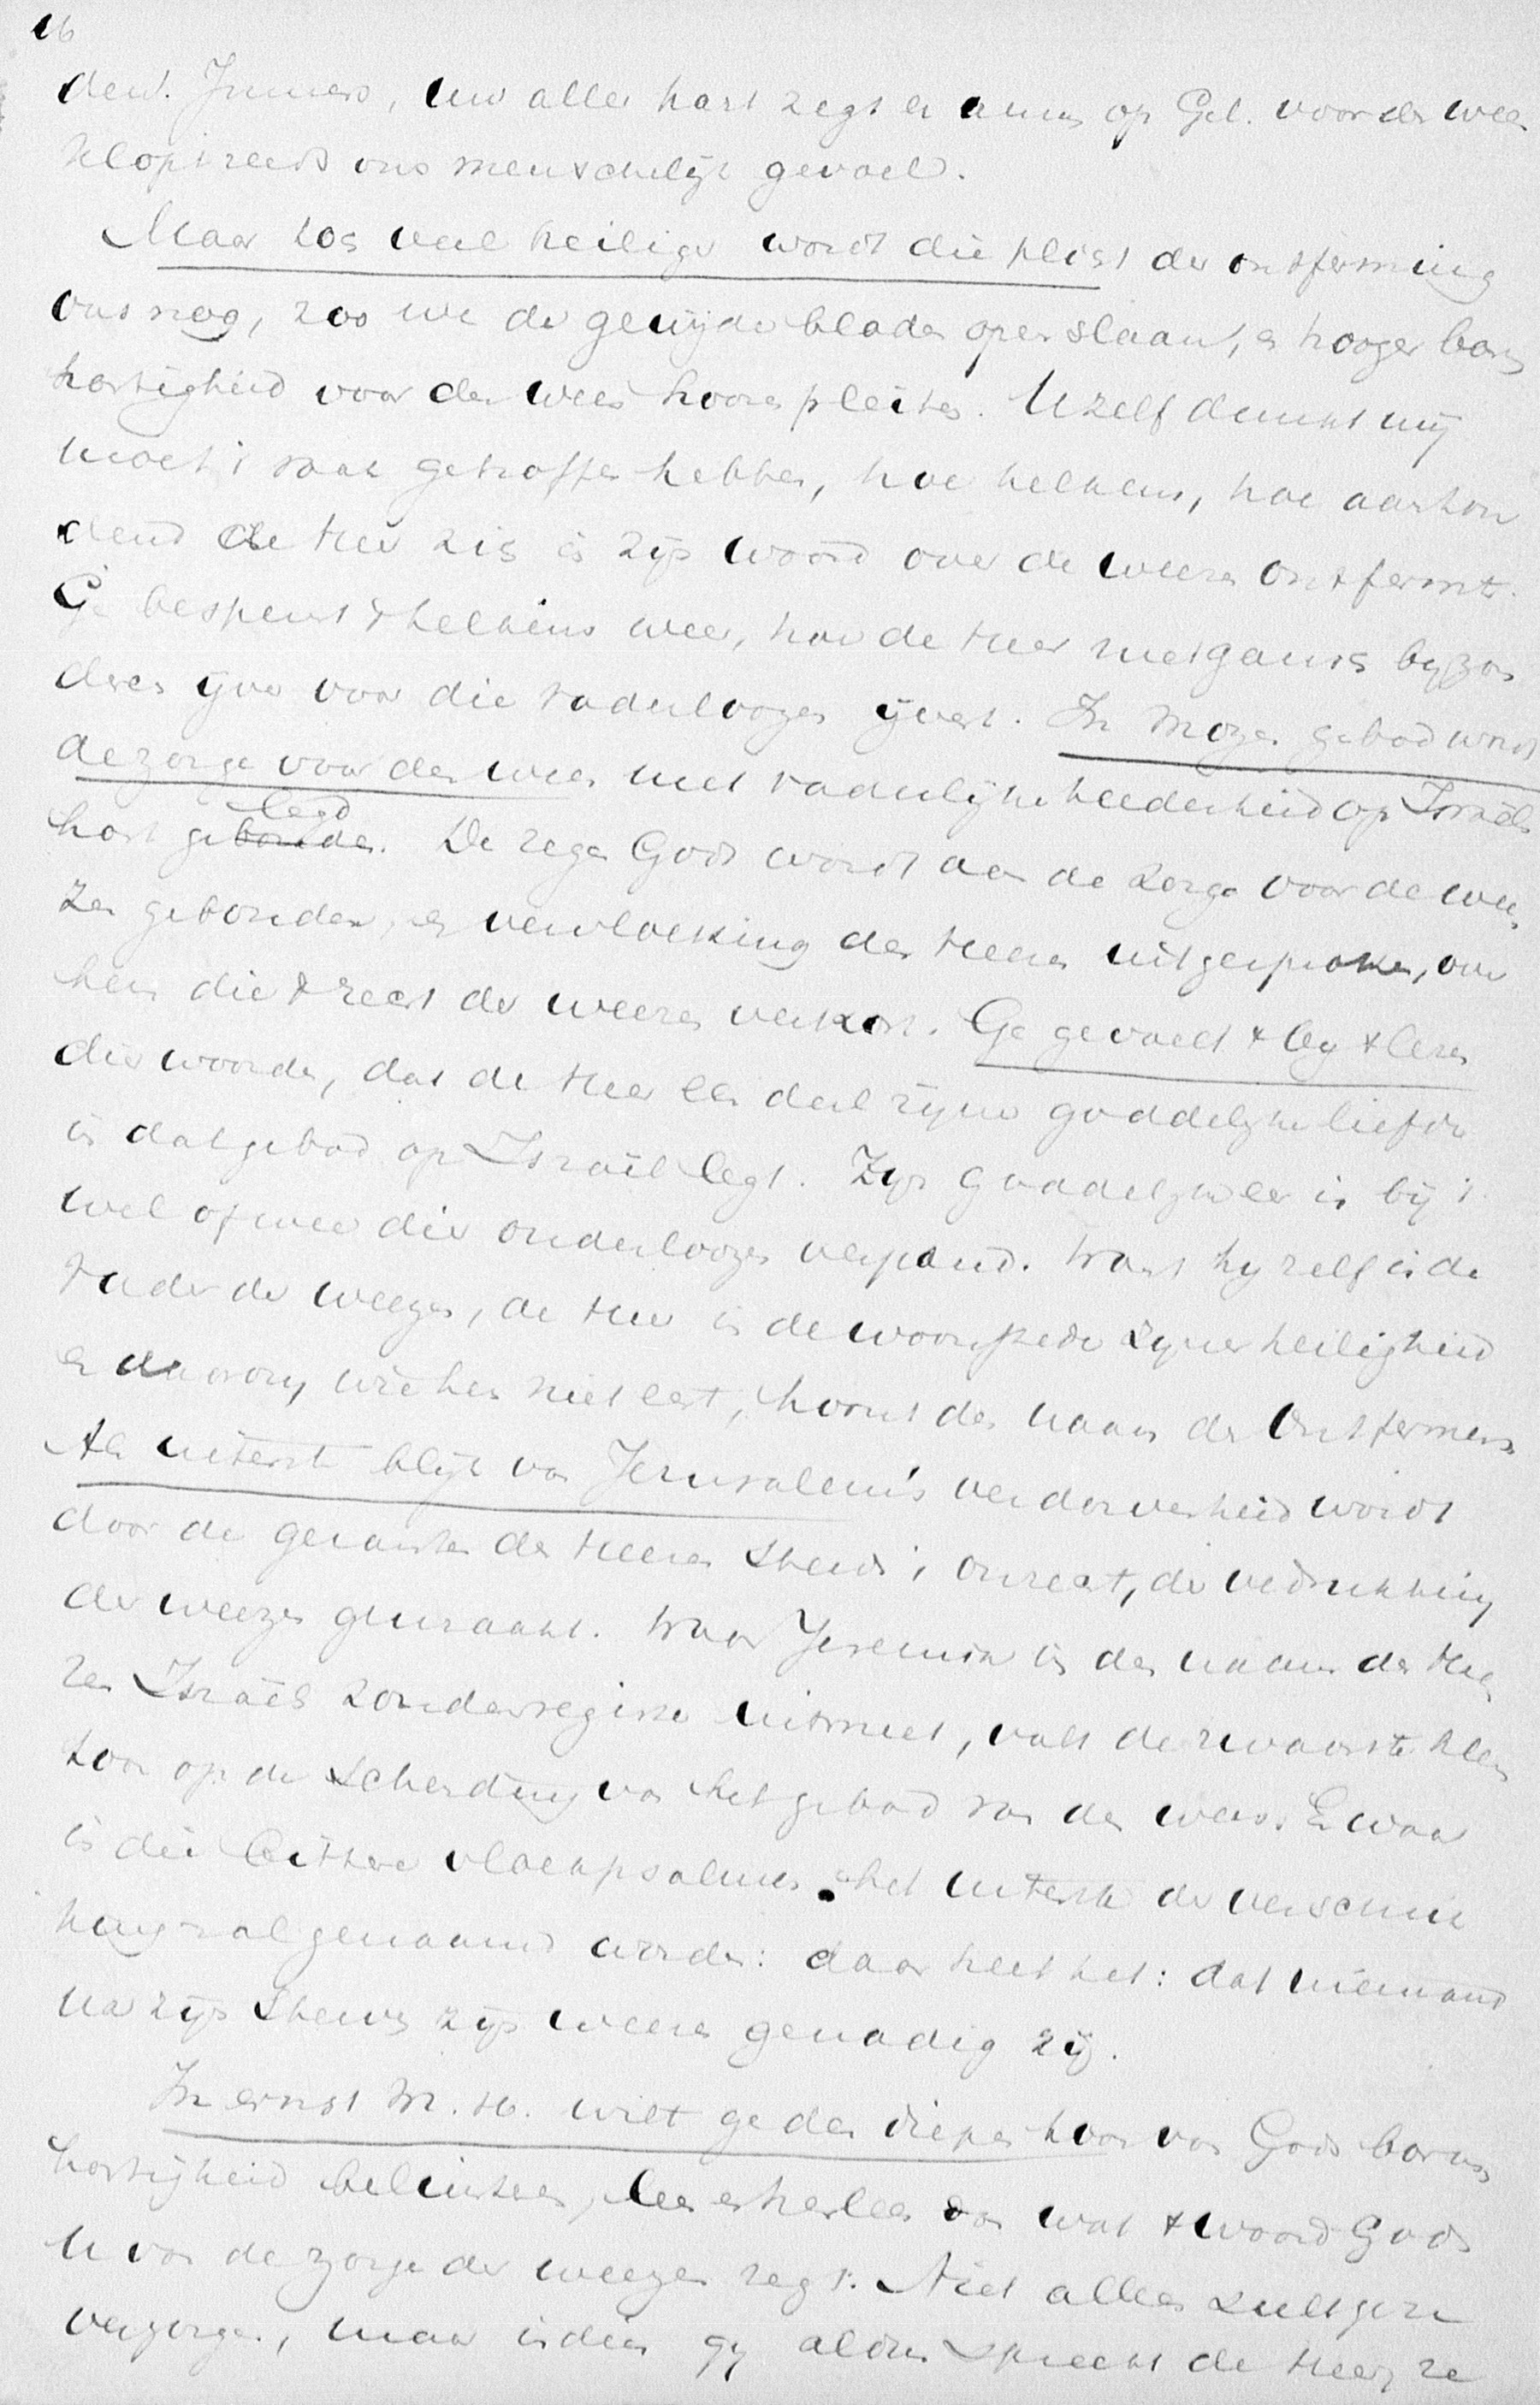 16
dend. Immers, uw aller hart zegt er amen op Gel. voor de wees
klopt reeds ons menschelijk gevoel.
Maar tog veel heiliger wordt die pligt der ontferming
ons nog, zoo we de gewijde bladen openslaan, en hooger barm
hartigheid voor den wees hooren pleiten. Uzelf dunkt mij
moet 't vaak getroffen hebben, hoe telkens, hoe aanhou
dend de Heer zig in zijn woord over de weezen ontfermt.
Ge bespeurt 't telkens weer, hoe de Heer met gansch byzon
deren yver voor die vaderloozen ijvert. In Mozes gebod wordt
de zorge voor den wees met vaderlijke teederheid op Israëls
hart gebonden. legd
De zegen Gods wordt aan de zorge voor de wee
zen gebonden, en vervloeking des Heeren uitgesproken, over
hen die 't regt der weezen verkort. Ge gevoelt 't by 't lezen
dier woorden, dat de Heer een deel zijner goddelyke liefde
in dat gebod op Israël legt. Zijn goddelyke eer is bij 't
wel of wee dier ouderloozen verpand. Want hy zelf is de
Vader der weezen, de Heer in de woonstede zyner heiligheid
en daarom, wie hen niet eert, hoont den naam des Ontfermers
Als uiterste blijk van Jerusalem's verdorvenheid wordt
door de gezanten des Heeren steeds 't onregt, de verdrukking
der weezen gewraakt. Waar Jeremia in den naam des Hee
ren Israëls zonderegister uitmeet, valt de zwaarste klem
toon op de schending van het gebod van den wees. En waar
in die bittere vloekpsalmen het uiterste der verschrik
king zal genaamd worden: daar heet het: dat niemand
na zijn sterven zijn weezen genadig zij.
In ernst M. H. wilt ge den diepen toon van Gods barm
hartigheid beluisteren, lees en herlees dan wat 't woord Gods
u van de zorge der weezen zegt. Niet alleen zult ge ze
verzorgen, maar indien gy aldus spreekt de Heer, ze